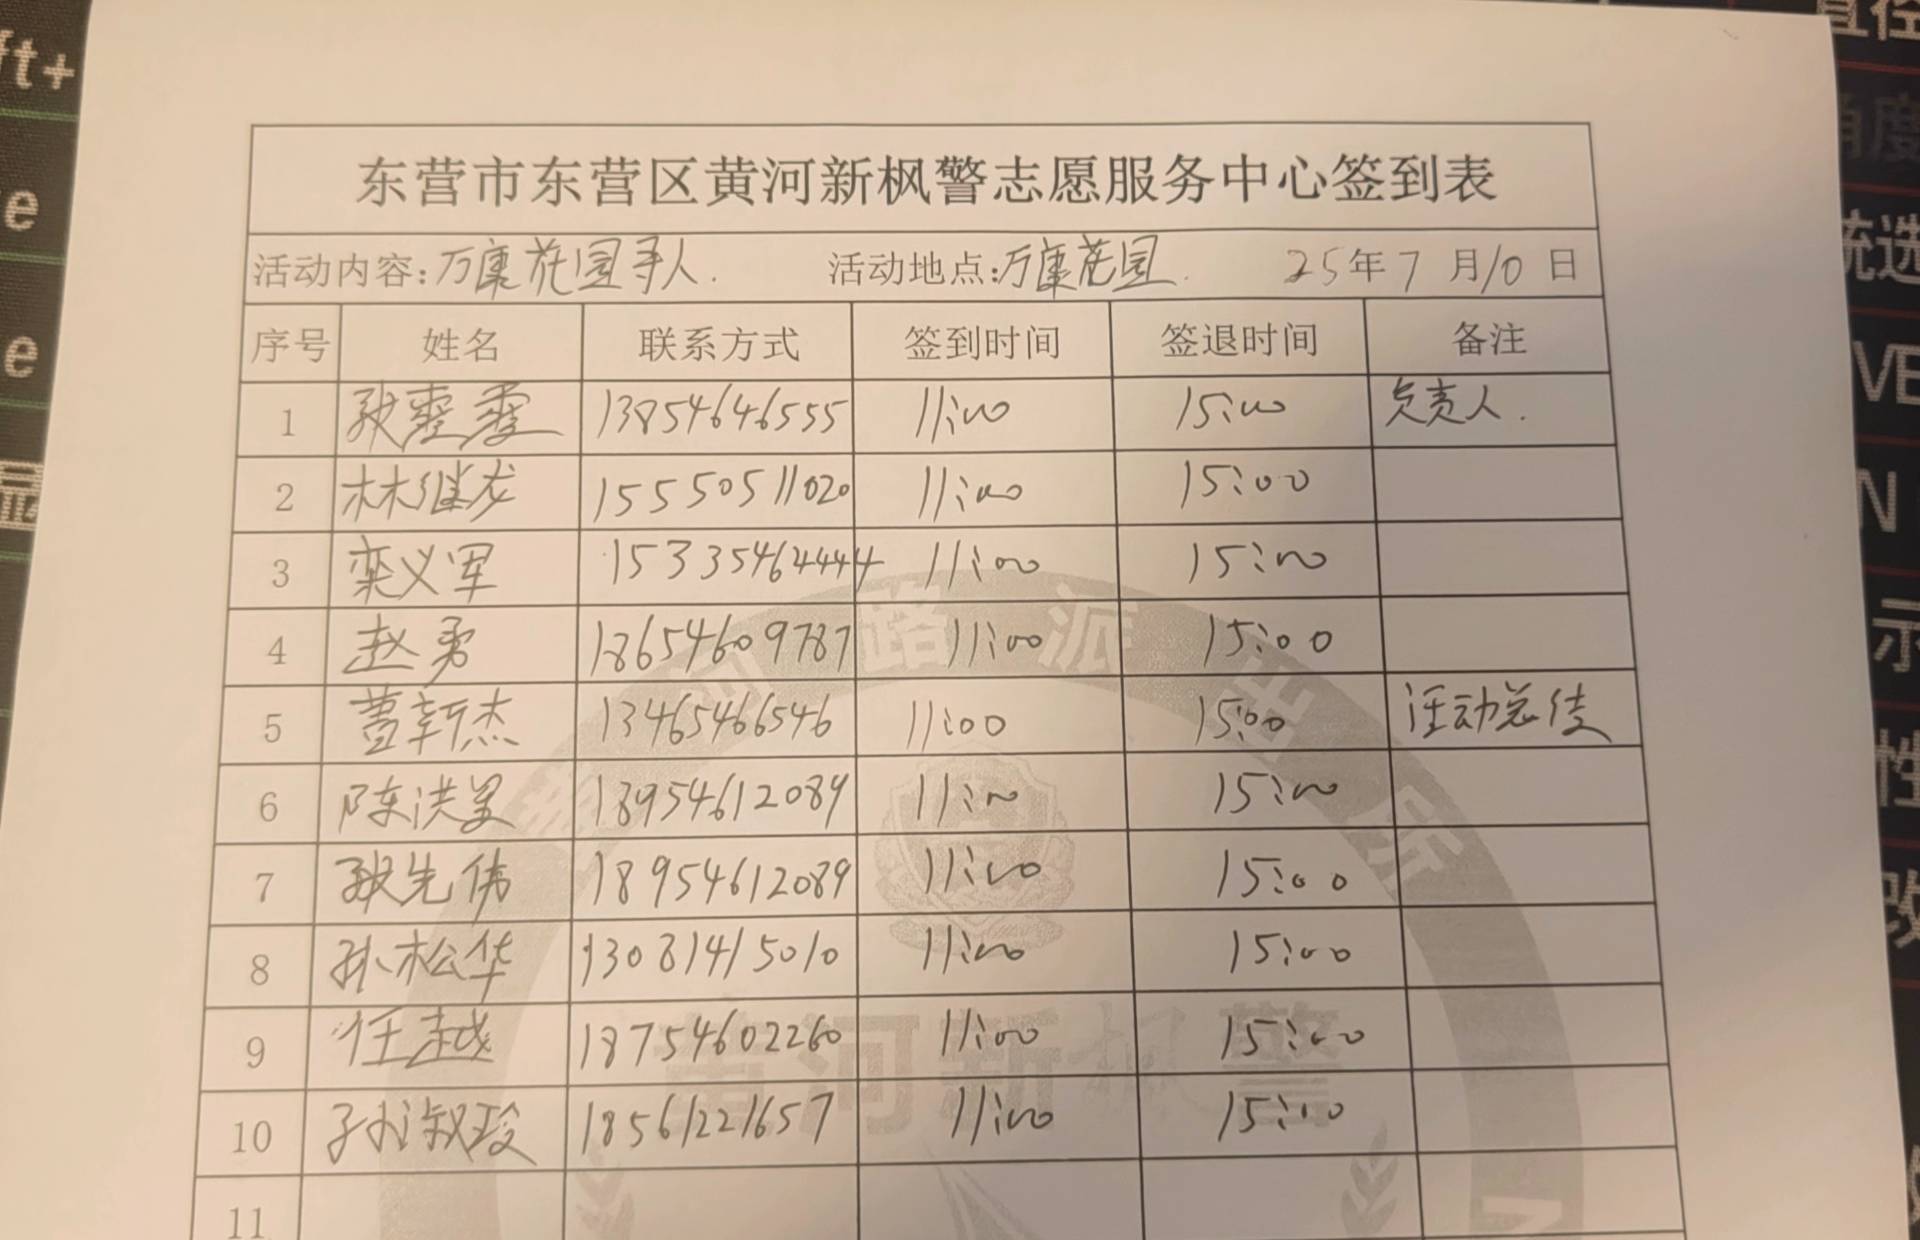 东营市东营区黄河新枫警志愿服务中心签到表
活动内容:万康花园寻人. 活动地点:万康花园. 25年7月10日
序号 姓名 联系方式 签到时间 签退时间 备注
1 13854646555 11:00 15:00 负责人.
2 林继龙 15550511020 11:00 15:00
3 栾义军 15335464444 11:00 15:00
4 赵勇 18654609787 11:00 15:00
5 曹新杰 13465466546 11:00 15:00 活动总结
6 陈洪昊 18954612089 11:00 15:00
7 耿先伟 18954612089 11:00 15:00
8 孙松华 13081415010 11:00 15:00
9 任越 18754602260 11:00 15:00
10 孙淑玲 18561221657 11:00 15:00
11
黄河路派出所
黄河新枫警
ft+
e
e
显
直径
角度
统选
VE
N
示
性
改